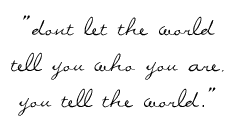 "dont let the world
tell you who you are.
you tell the world."